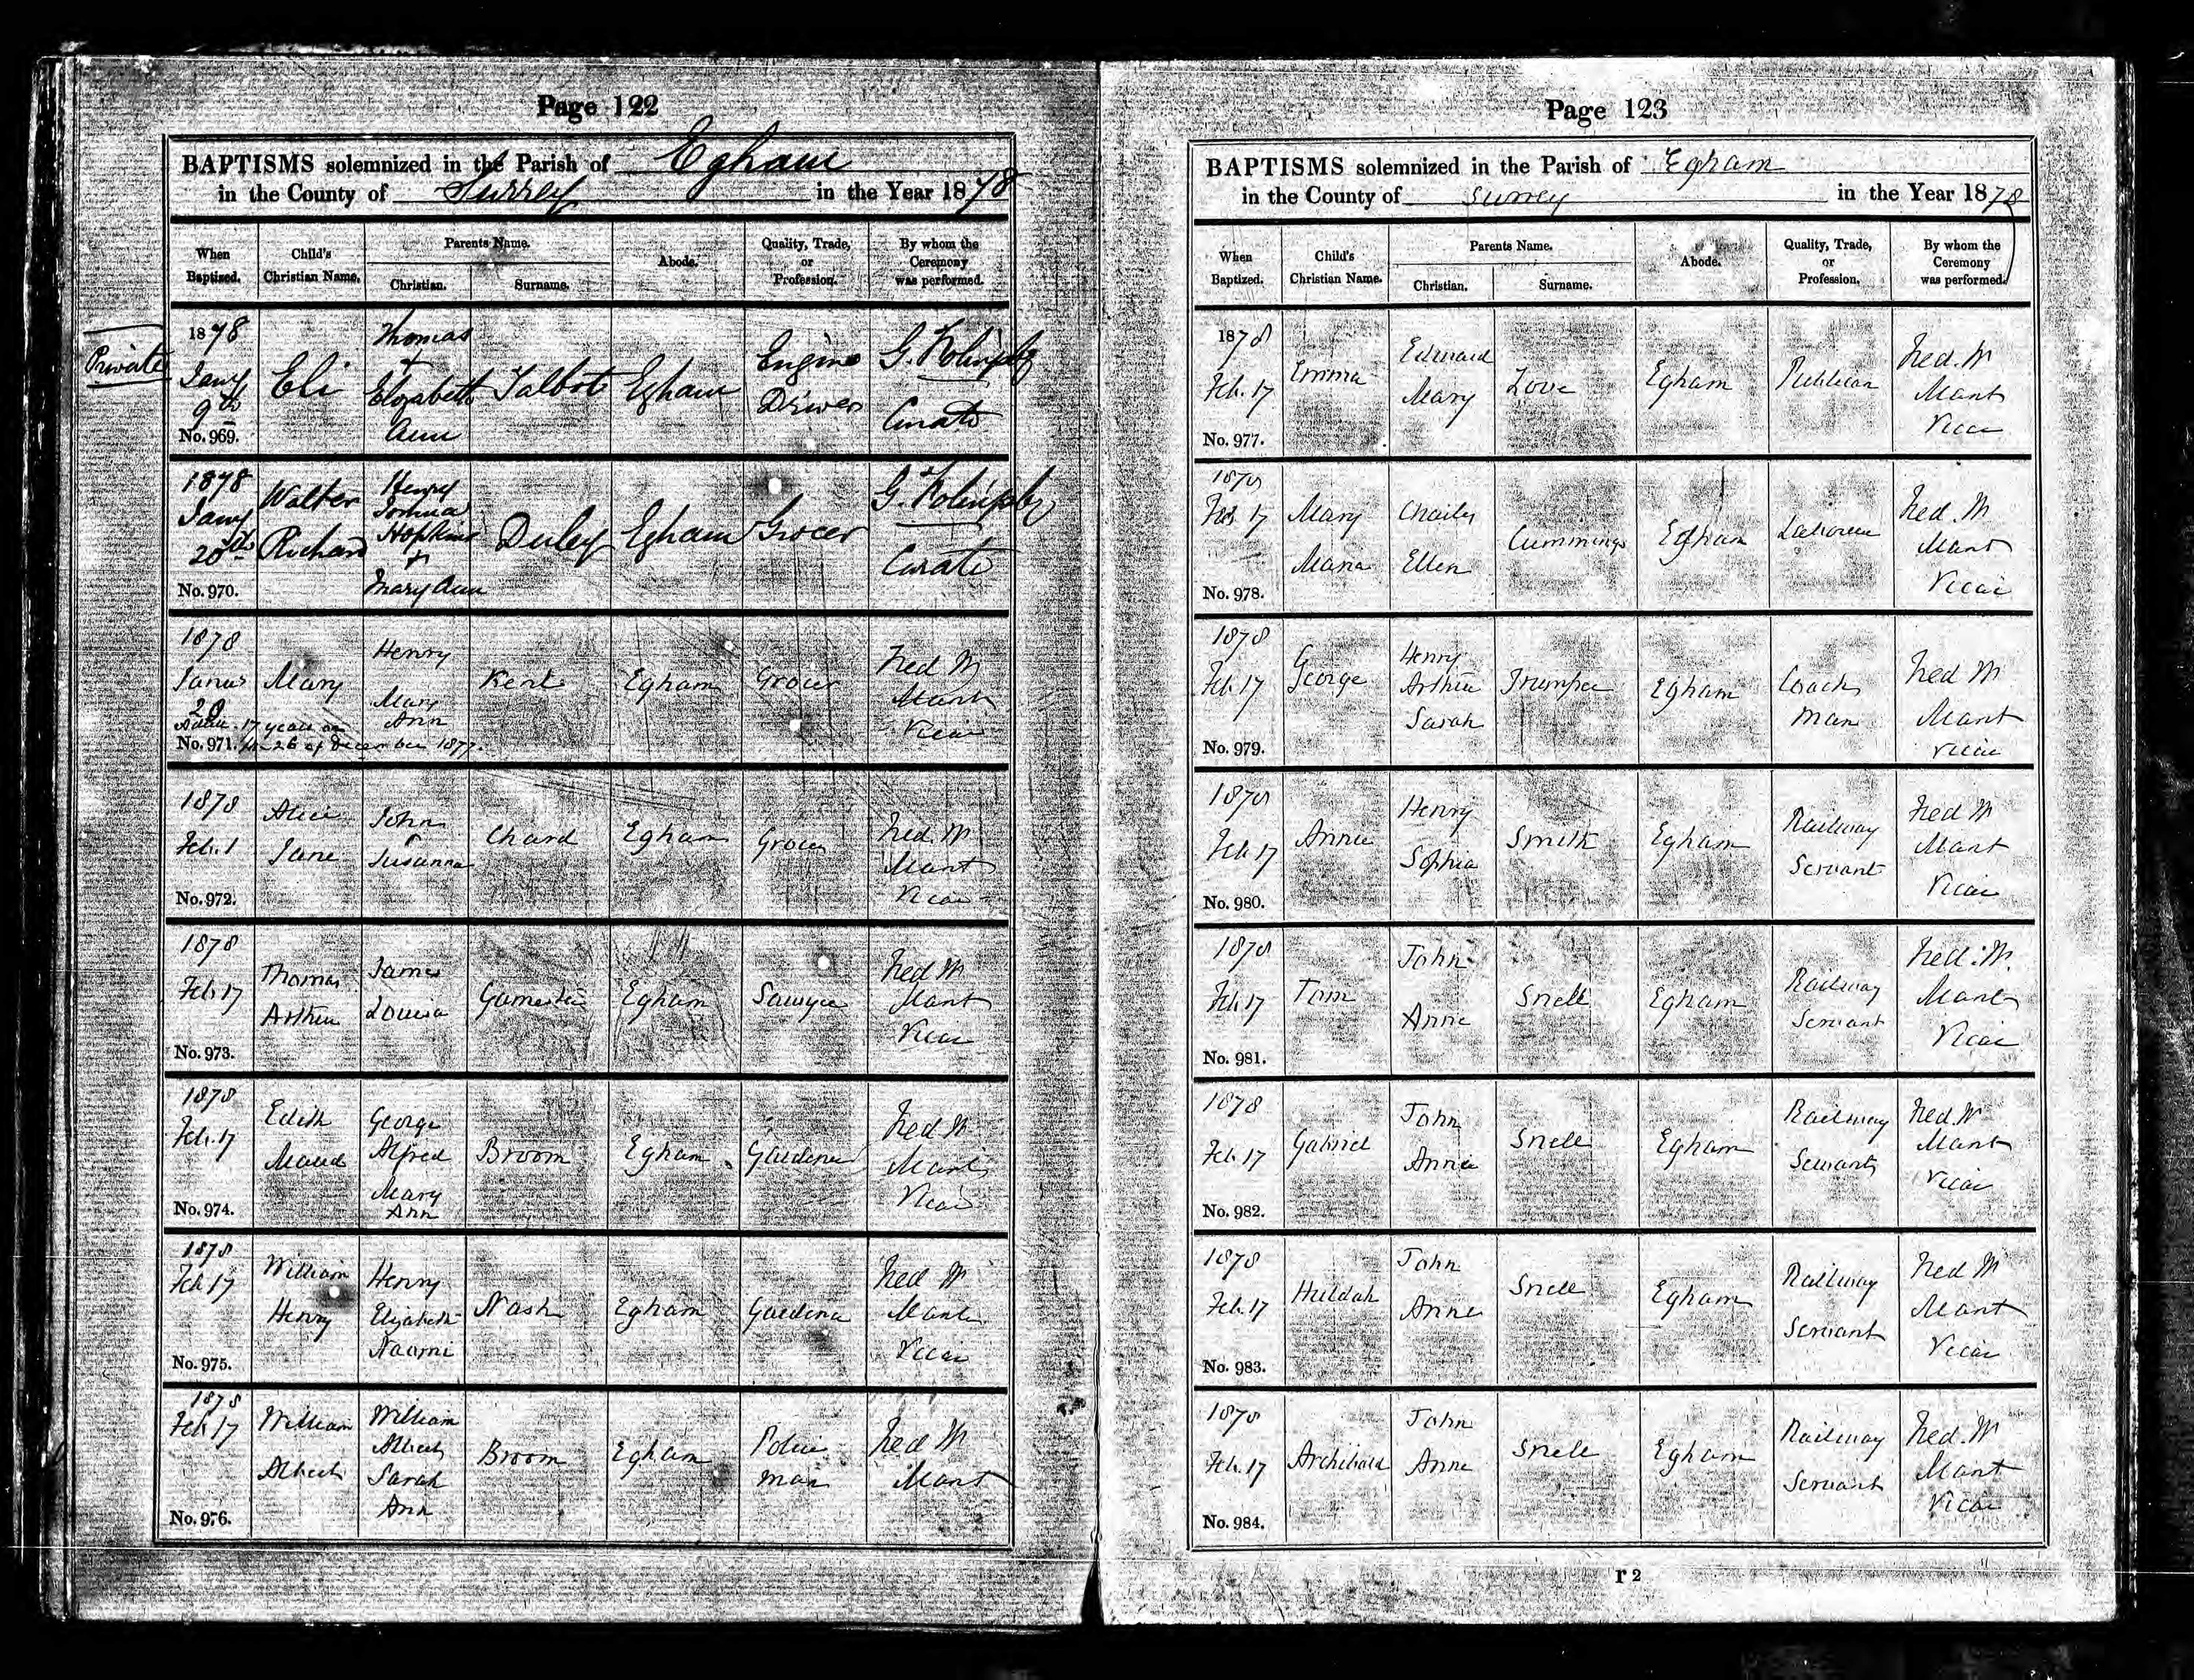 Page 122
BAPTISMS solemnized in the Parish of Egham
in the County of Surrey in the Year 1878
When Baptized.
Child's Christian Name.
Parents Name.
Christian.
Surname.
Abode.
Quality, Trade, or Profession.
By whom the Ceremony was performed.
Private
1878 Jany 9th
No. 969.
Eli
Thomas + Elizabeth Ann
Talbot
Egham
Engine Driver
G. Curate
1878 Jany 20th
No. 970.
Walter Richard
Henry Joshua Hopkins + Mary Ann
Duley
Egham
Grocer
G. Curate
1878
20
Adult. 17 years on
No. 971. the 26 of December 1877.
Mary
Henry
Mary Ann
Kent
Egham
Grocer
Fred M Mant Vicar
1878 Feb. 1
No. 972.
Alice Jane
John
Susanna
Chard
Egham
Grocer
Fred. M Mant Vicar
1878 Feb 17
No. 973.
Thomas Arthur
James
Louisa
Egham
Sawyer
Fred M Mant Vicar
1878 Feb. 17
No. 974.
Edith Maud
George Alfred
Mary Ann
Broom
Egham
Gardener
Fred M Mant Vicar
1878 Feb 17
No. 975.
William Henry
Henry
Elizabeth Naomi
Nash
Egham
Gardener
Fred M Mant Vicar
1878 Feb 17
No. 976.
William Albert
William Albert
Sarah Ann
Broom
Egham
Police man
Fred M Mant
Page 123
BAPTISMS solemnized in the Parish of Egham
in the County of Surrey in the Year 1878
When Baptized.
Child's Christian Name.
Parents Name.
Christian.
Surname.
Abode.
Quality, Trade, or Profession.
By whom the Ceremony was performed.
1878 Feb. 17
No. 977.
Emma
Edward
Mary
Love
Egham
Publican
Fred. M Mant Vicar
1878 Feb 17
No. 978.
Mary Maria
Charles
Ellen
Cummings
Egham
Labourer
Fred. M Mant Vicar
1878 Feb. 17
No. 979.
George
Henry Arthur
Sarah
Trumper
Egham
Coach man
Fred M Mant Vicar
1878 Feb 17
No. 980.
Annie
Henry
Sophia
Smith
Egham
Railway Servant
Fred M Mant Vicar
1878 Feb 17
No. 981.
Tom
John
Anne
Snell
Egham
Railway Servant
Fred. M. Mant Vicar
1878 Feb 17
No. 982.
Gabriel
John
Annie
Snell
Egham
Railway Servant
Fred. M Mant Vicar
1878 Feb. 17
No. 983.
Huldah
John
Anne
Snell
Egham
Railway Servant
Fred M Mant Vicar
1878 Feb. 17
No. 984.
Archibald
John
Anne
Snell
Egham
Railway Servant
Fred. M Mant Vicar
r 2